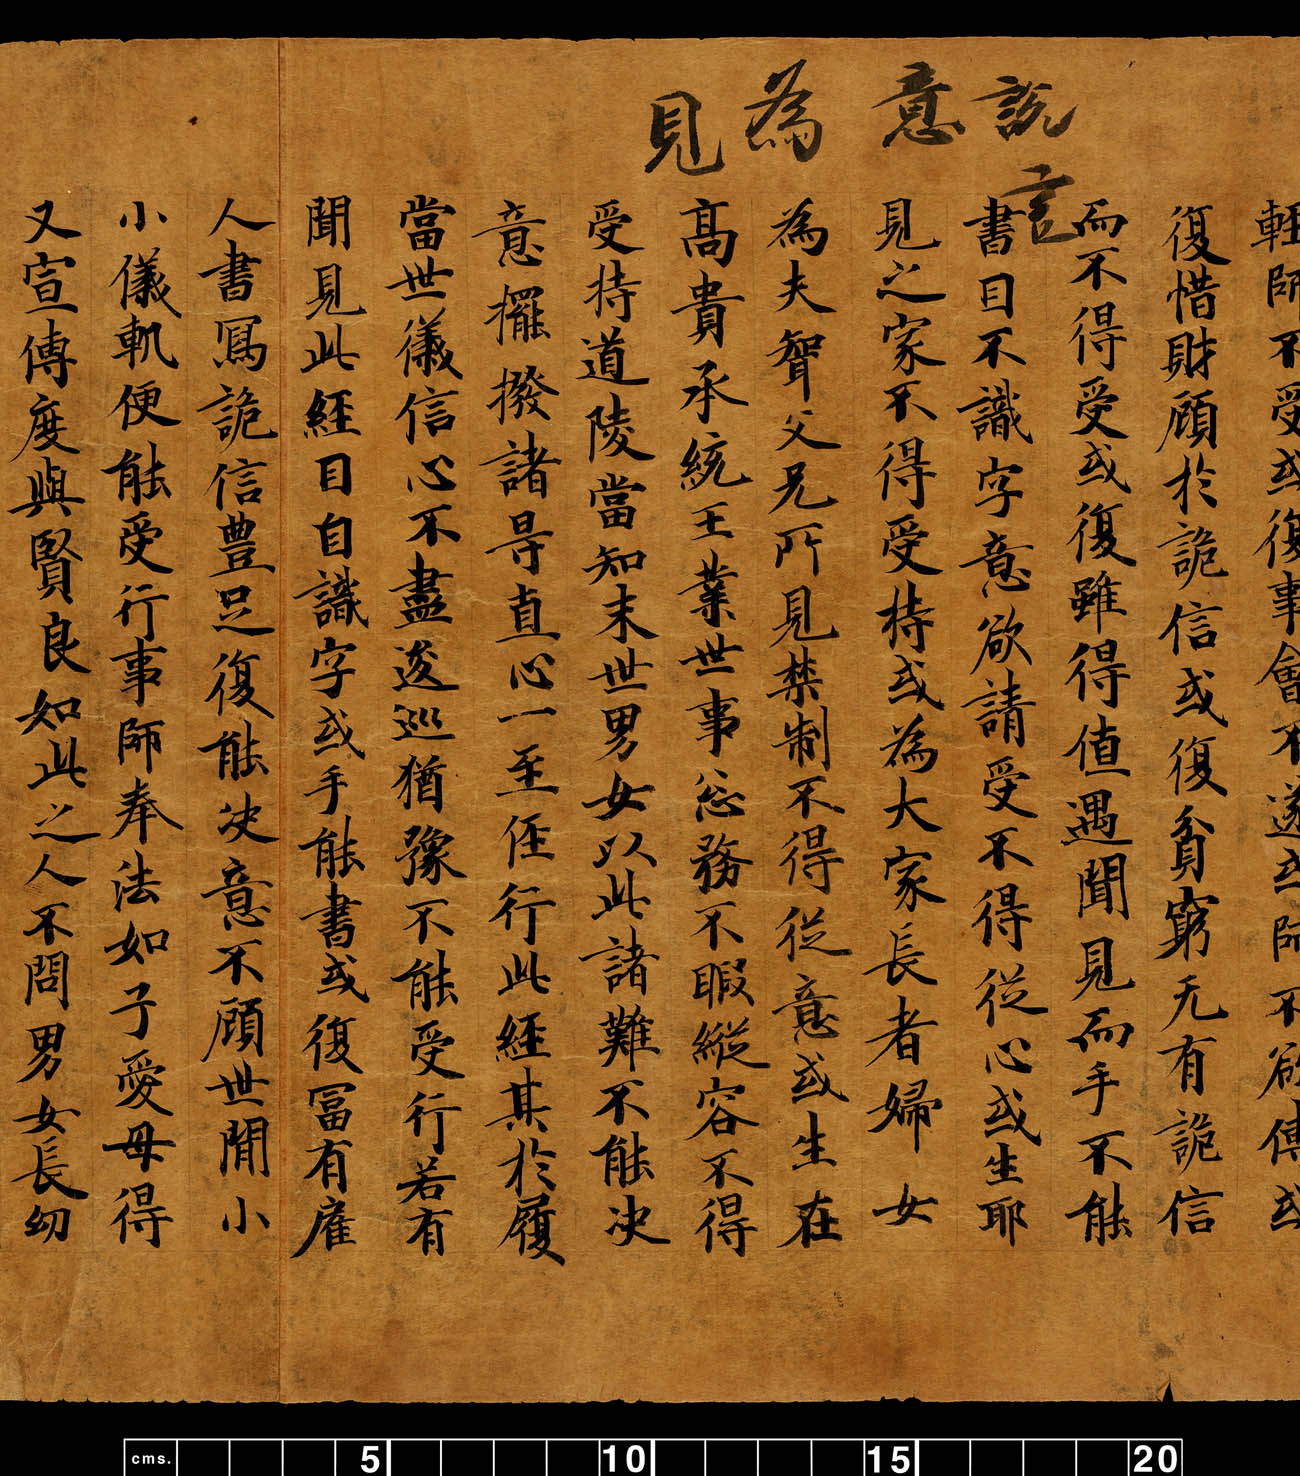 說意為見
言
輕師不受或復事會不遂或師不欲傳或
復惜財顧於詭信或復貧窮无有詭信
而不得受或復雖得值遇聞見而手不能
書目不識字意欲請受不得從心或生耶
見之家不得受持或為大家長者婦女
為夫聟父兄所見禁制不得從意或生在
高貴承統王業世事忩務不暇縱容不得
受持道陵當知末世男女以此諸難不能決
意擺撥諸㝵直心一至任行此經其於履
當世儀信心不盡逡巡猶豫不能受行若有
聞見此經目自識字或手能書或復冨有雇
人書寫詭信豊足復能決意不顧世間小
小儀軌便能受行事師奉法如子愛母得
又宣傳度與賢良如此之人不問男女長幼
cms. 5 10 15 20